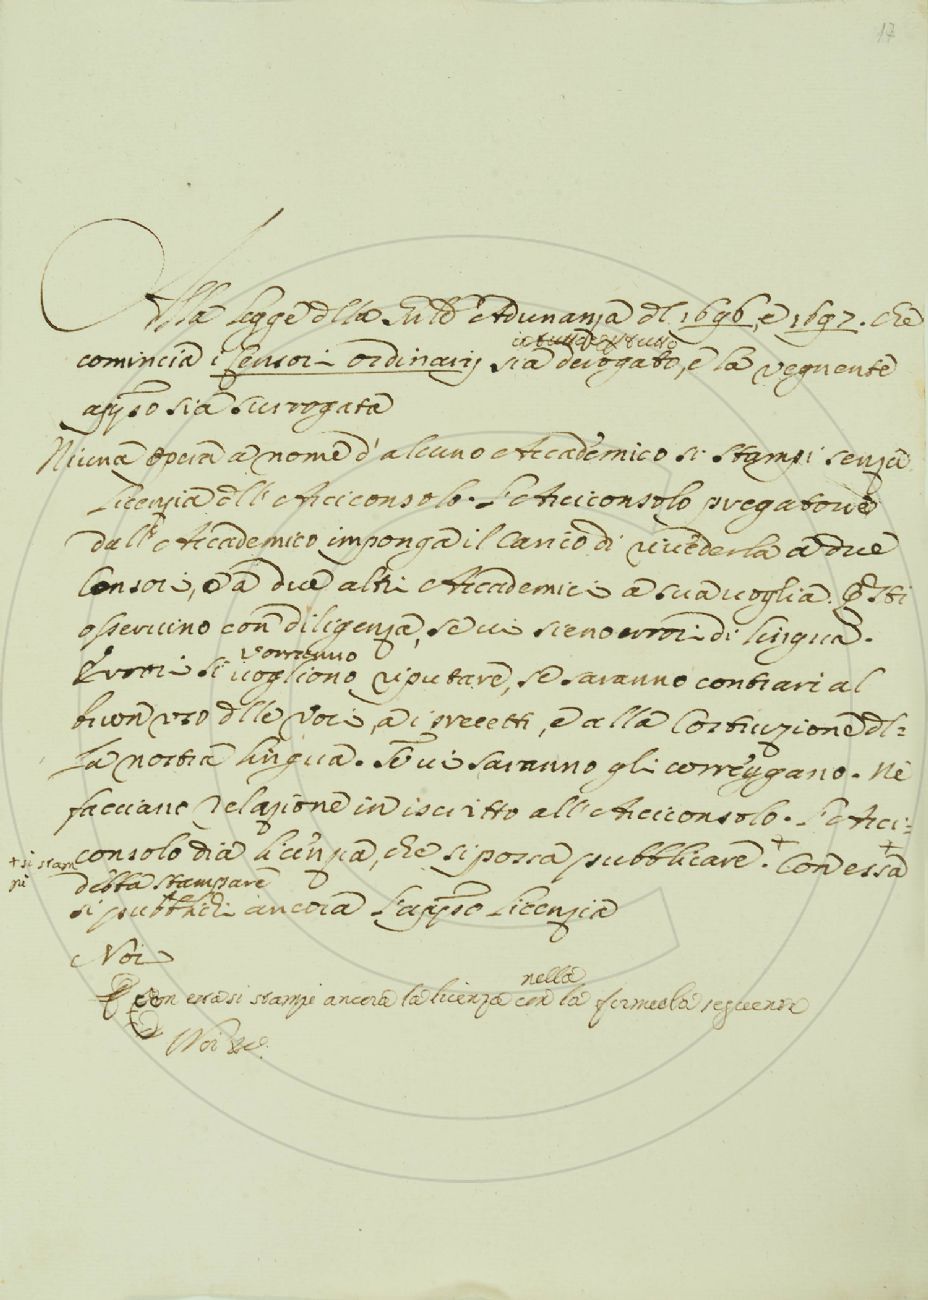 17
Alla Legge della Pub.ca Adunanza del 1696, e 1697. che
in tutto e per tutto
comincia i Censori ordinarij sia derogato, e la seguente
appo sia surrogata
Niuna Opera a nome d'alcuno Accademico si stampi senza
Licenzia dell'Arciconsolo. L'Arciconsolo pregatone
dall'Accademico imponga il Carico di rivederla a due
Censori, e a due altri Accademici a sua voglia. Questi
osservino con diligenza, se vi sieno errori di lingua.
vorranno
Errori si vogliono riputare, se saranno contrari al
buon uso delle Voci, a i precetti, e alla Costruzione del=
la nostra Lingua. Se vi saranno gli correggano. Ne
facciano relazione in iscritto all'Arciconsolo. L'Arci=
consolo dia licenzia, che si possa pubblicare. + Con essa +
+ si stam
pi
debba stampare
si pubblichi ancora l'appo Licenzia
Noi
nella
Con essa si stampi ancora la licenza con la formola seguente
Noi &c.